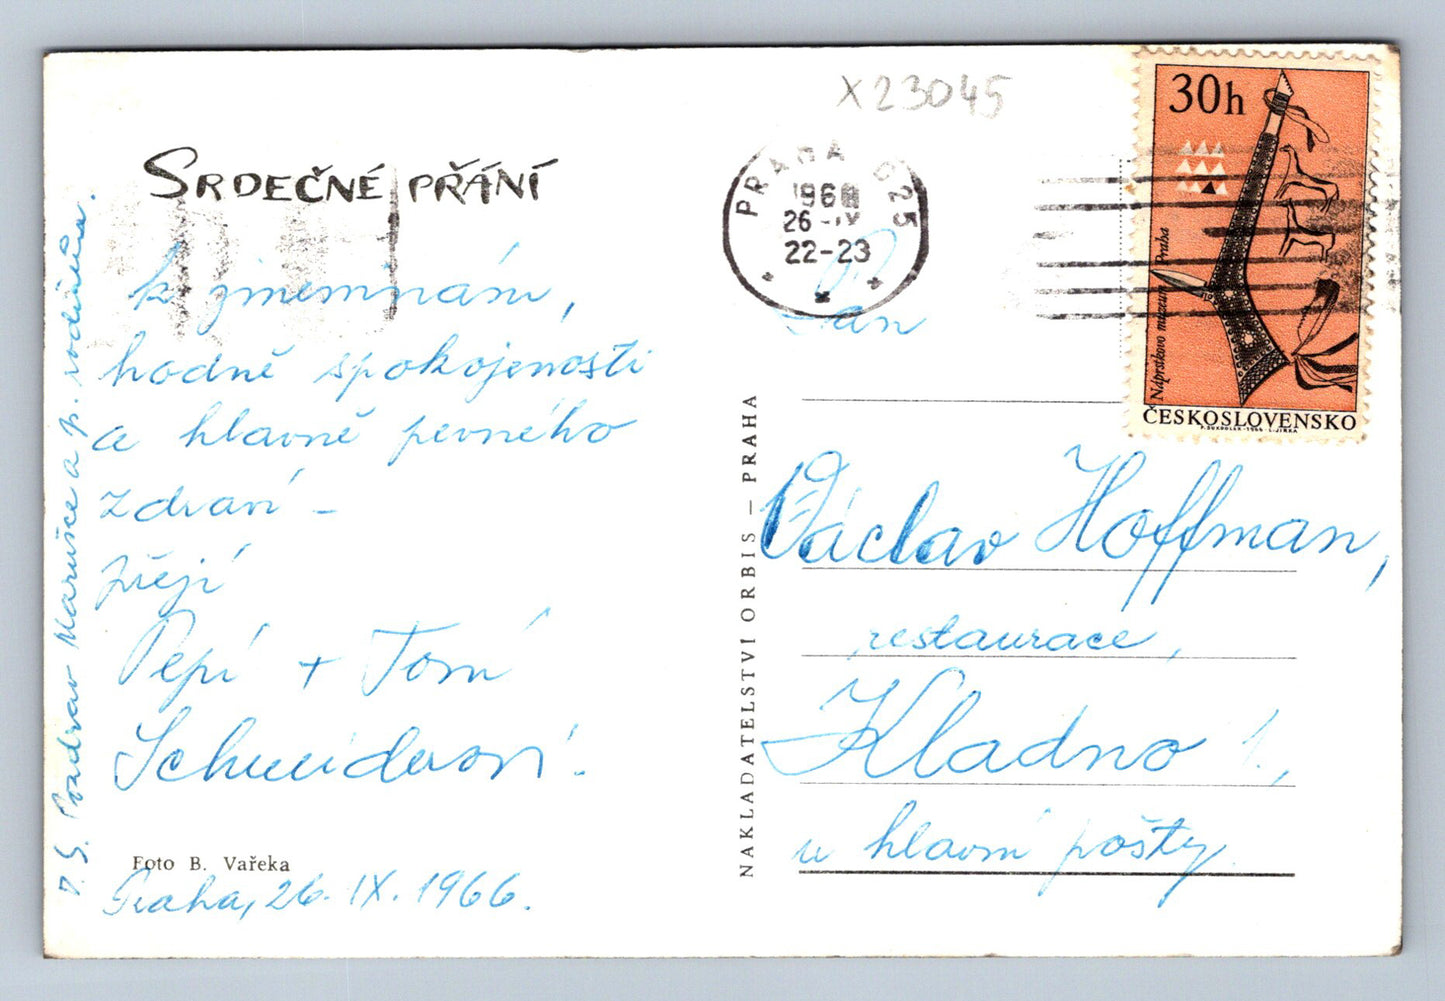 X23045
SRDEČNÉ PŘÁNÍ
k jmeninám,
hodně spokojenosti
a hlavně pevného
zdraví –
přejí
Pepí + Tom
Schneiderovi.
Foto B. Vařeka
Praha, 26. IX. 1966.
P. S. Pozdrav Marušce a p. rodičům.
NAKLADATELSTVÍ ORBIS – PRAHA
PRAHA 025
196
26
22-23
30h
Náprstkovo muzeum Praha
ČESKOSLOVENSKO
Pan
Václav Hoffman,
restaurace,
Kladno 1.,
u hlavní pošty.